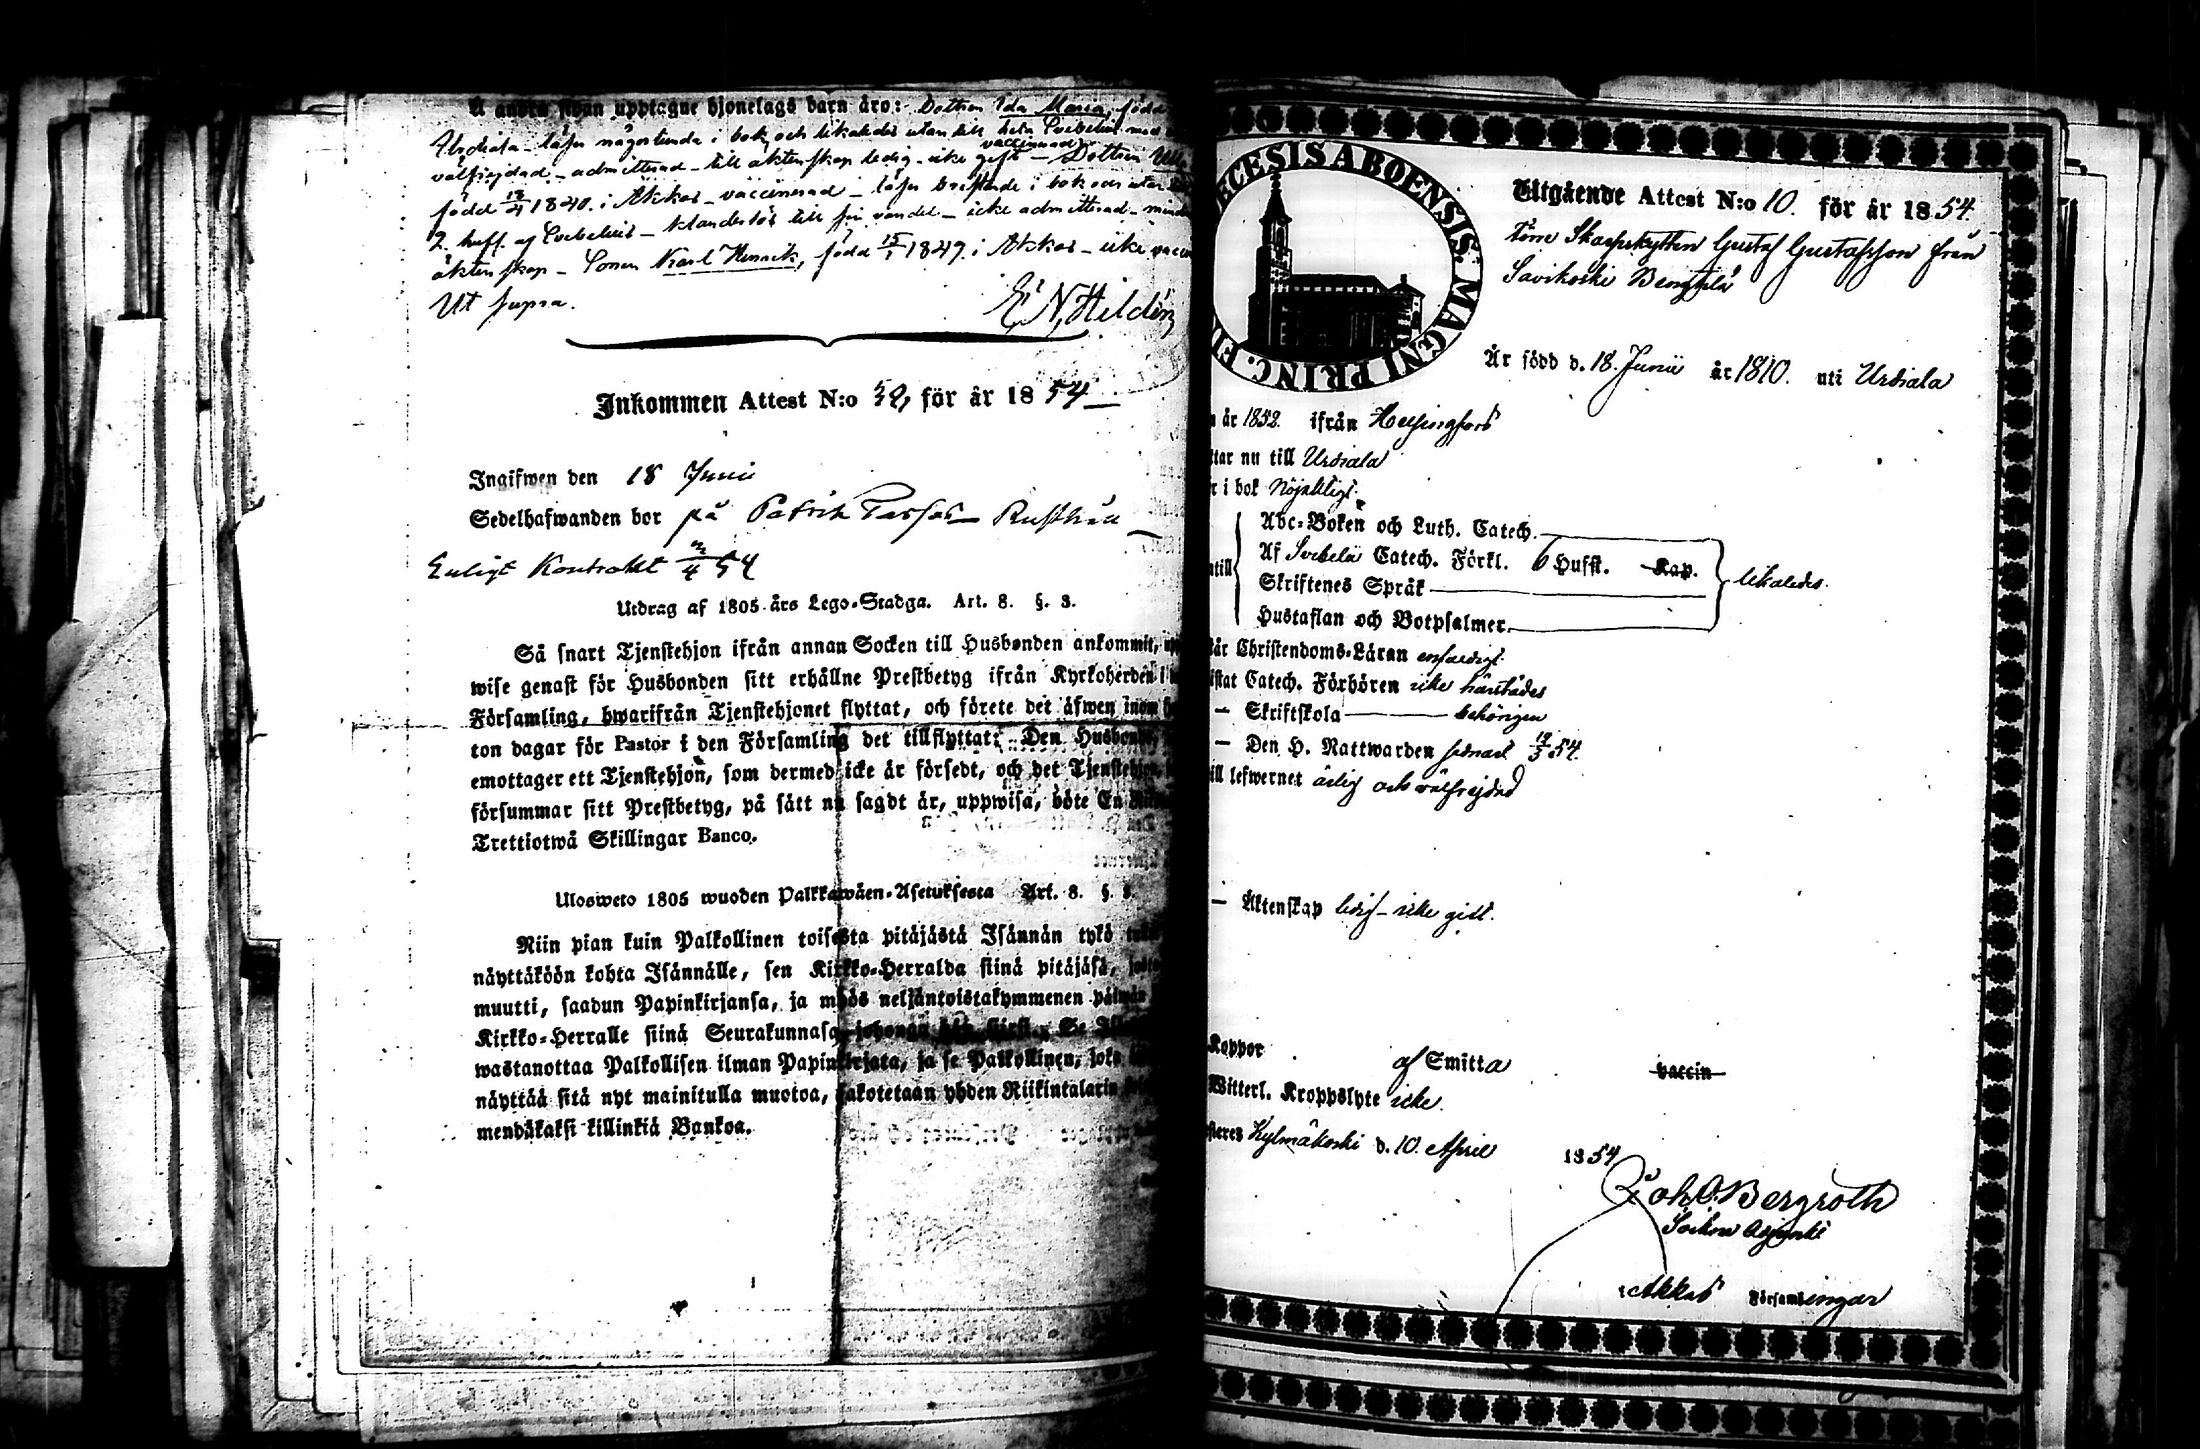 å andra sidan upptagne hjonelags barn äro: Dottren Ida Maria, född
Urdiala - läser någorlunda i bok och likaledes utan till hela Svebelius med
välfrejdad - admitterad - till äktenskap ledig - icke gift - vaccinerad - Dottren
född 18/4 1840. i Akkas - vaccinerad - läser bristande i bok och utan
2. huff. af Svebelius - klanderlös till sin vandel - icke admitterad -
äktenskap - Sonen Karl Henrik, född 15/1 1849. i Akkas - icke
Ut supra.
E. N. Hildén
Inkommen Attest N:o 32, för år 1854
Ingifwen den 18 Junii
Sedelhafwanden bor på Patrik Rusthåll
Enligt Kontrakt 4 54
Utdrag af 1805 års Lego-Stadga. Art. 8. §. 3.
Så snart Tjenstehjon ifrån annan Socken till Husbonden ankommit,
wise genast för Husbonden sitt erhållne Prestbetyg ifrån Kyrkoherden i
Församling, hwarifrån Tjenstehjonet flyttat, och förete det äfwen inom
ton dagar för Pastor i den Församling det tillflyttat; Den Husbonde,
emottager ett Tjenstehjon, som dermed icke är försedt, och det Tjenstehjon,
försummar sitt Prestbetyg, på sätt nu sagdt är, uppwisa, böte En
Trettiotwå Skillingar Banco.
Ulosweto 1805 wuoden Palkkawäen-Asetuksesta Art. 8. §. 3.
Niin pian kuin Palkollinen toisesta pitäjästä Isännän tykö
näyttäköön kohta Isännälle, sen Kirkko-Herralda siinä pitäjäsä,
muutti, saadun Papinkirjansa, ja myös neljäntoistakymmenen päiwän
Kirkko-Herralle siinä Seurakunnasa, johonga hän siirsi. Se
wastanottaa Palkollisen ilman Papinkirjata, ja se Palkollinen, joka
näyttää sitä nyt mainitulla muotoa, sakotetaan yhden Riikintalarin
mendäkaksi killinkiä Bankoa.
ECESIS ABOENSIS. MAGNI PRINC. FI
Utgående Attest N:o 10. för år 1854.
Skarpskytten Gustaf Gustafsson från
Savikoski Bengtilä
Är född d. 18. Junii år 1810. uti Urdiala
år 1852. ifrån Helsingfors
nu till Urdiala
i bok Nöjaktligt.
Abc-Boken och Luth. Catech.
Af Svebelii Catech. Förkl. 6 Hufst. Kap.
Skriftenes Språk
likaledes.
Hustaflan och Botpsalmer
Christendoms-Läran enfaldigt.
Catech. Förhören icke häruti
— Skriftskola behörigen
— Den H. Nattwarden senast 19/3 54.
lefwernet ärlig och välfrejdad
— Äktenskap ledig - icke gift.
Koppor af Smitta vaccin
Witterl. Kroppslyte icke.
Kylmäkoski d. 10. April 1854
Joh. O. Bergroth
Akkas Församlingar